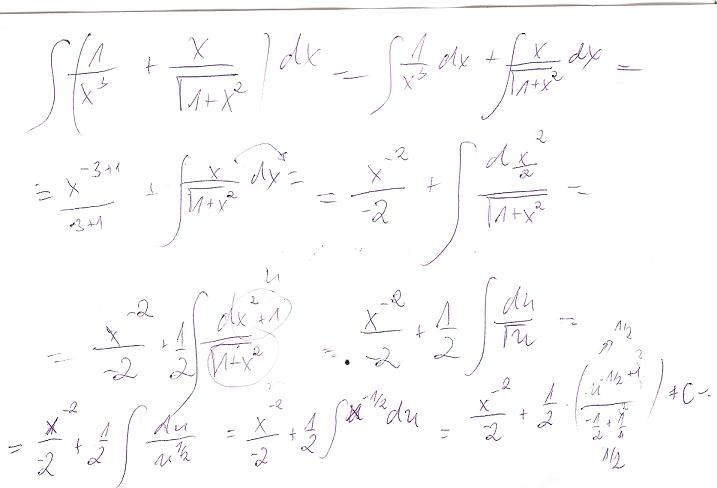 ∫(1/x³ + x/√(1+x²)) dx = ∫ 1/x³ dx + ∫ x/√(1+x²) dx =
= x⁻³⁺¹/-3+1 + ∫ x/√(1+x²) dx = = x⁻²/-2 + ∫ d x²/2 / √(1+x²) =
= x⁻²/-2 + 1/2 ∫ dx²+1 / √(1+x²) u = x⁻²/-2 + 1/2 ∫ du/√u =
= x⁻²/-2 + 1/2 ∫ du/u^(1/2) = x⁻²/-2 + 1/2 ∫ u^(-1/2) du = x⁻²/-2 + 1/2 · (u^(-1/2+1) / -1/2+1) + C =
1/2
1/2